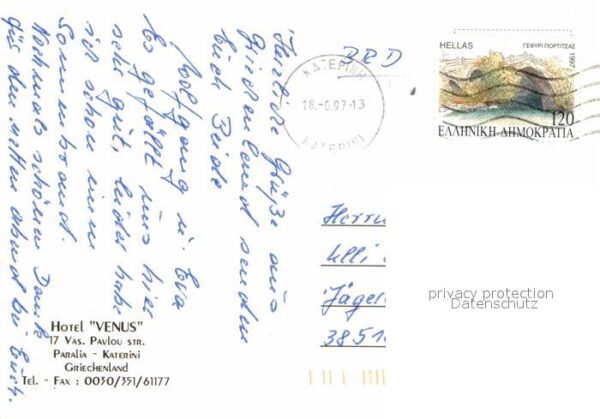 Herzliche Grüße aus
Griechenland senden
Euch Beide
Wolfgang u. Eva
Es gefällt uns hier
sehr gut, leider habe
ich schon einen
Sonnenbrand.
Nochmals schönen Dank
für den netten Abend bei Euch.
BRD
ΚΑΤΕΡΙΝΗ
18.-6.97.13
KATERINI
HELLAS
ΓΕΦΥΡΙ ΠΟΡΤΙΤΣΑΣ
1997
120
ΕΛΛΗΝΙΚΗ ΔΗΜΟΚΡΑΤΙΑ
Herrn
Ulli
Jäger
3851
privacy protection
Datenschutz
HOTEL "VENUS"
17 VAS. PAVLOU STR.
PARALIA - KATERINI
GRIECHENLAND
TEL. - FAX : 0030/351/61177